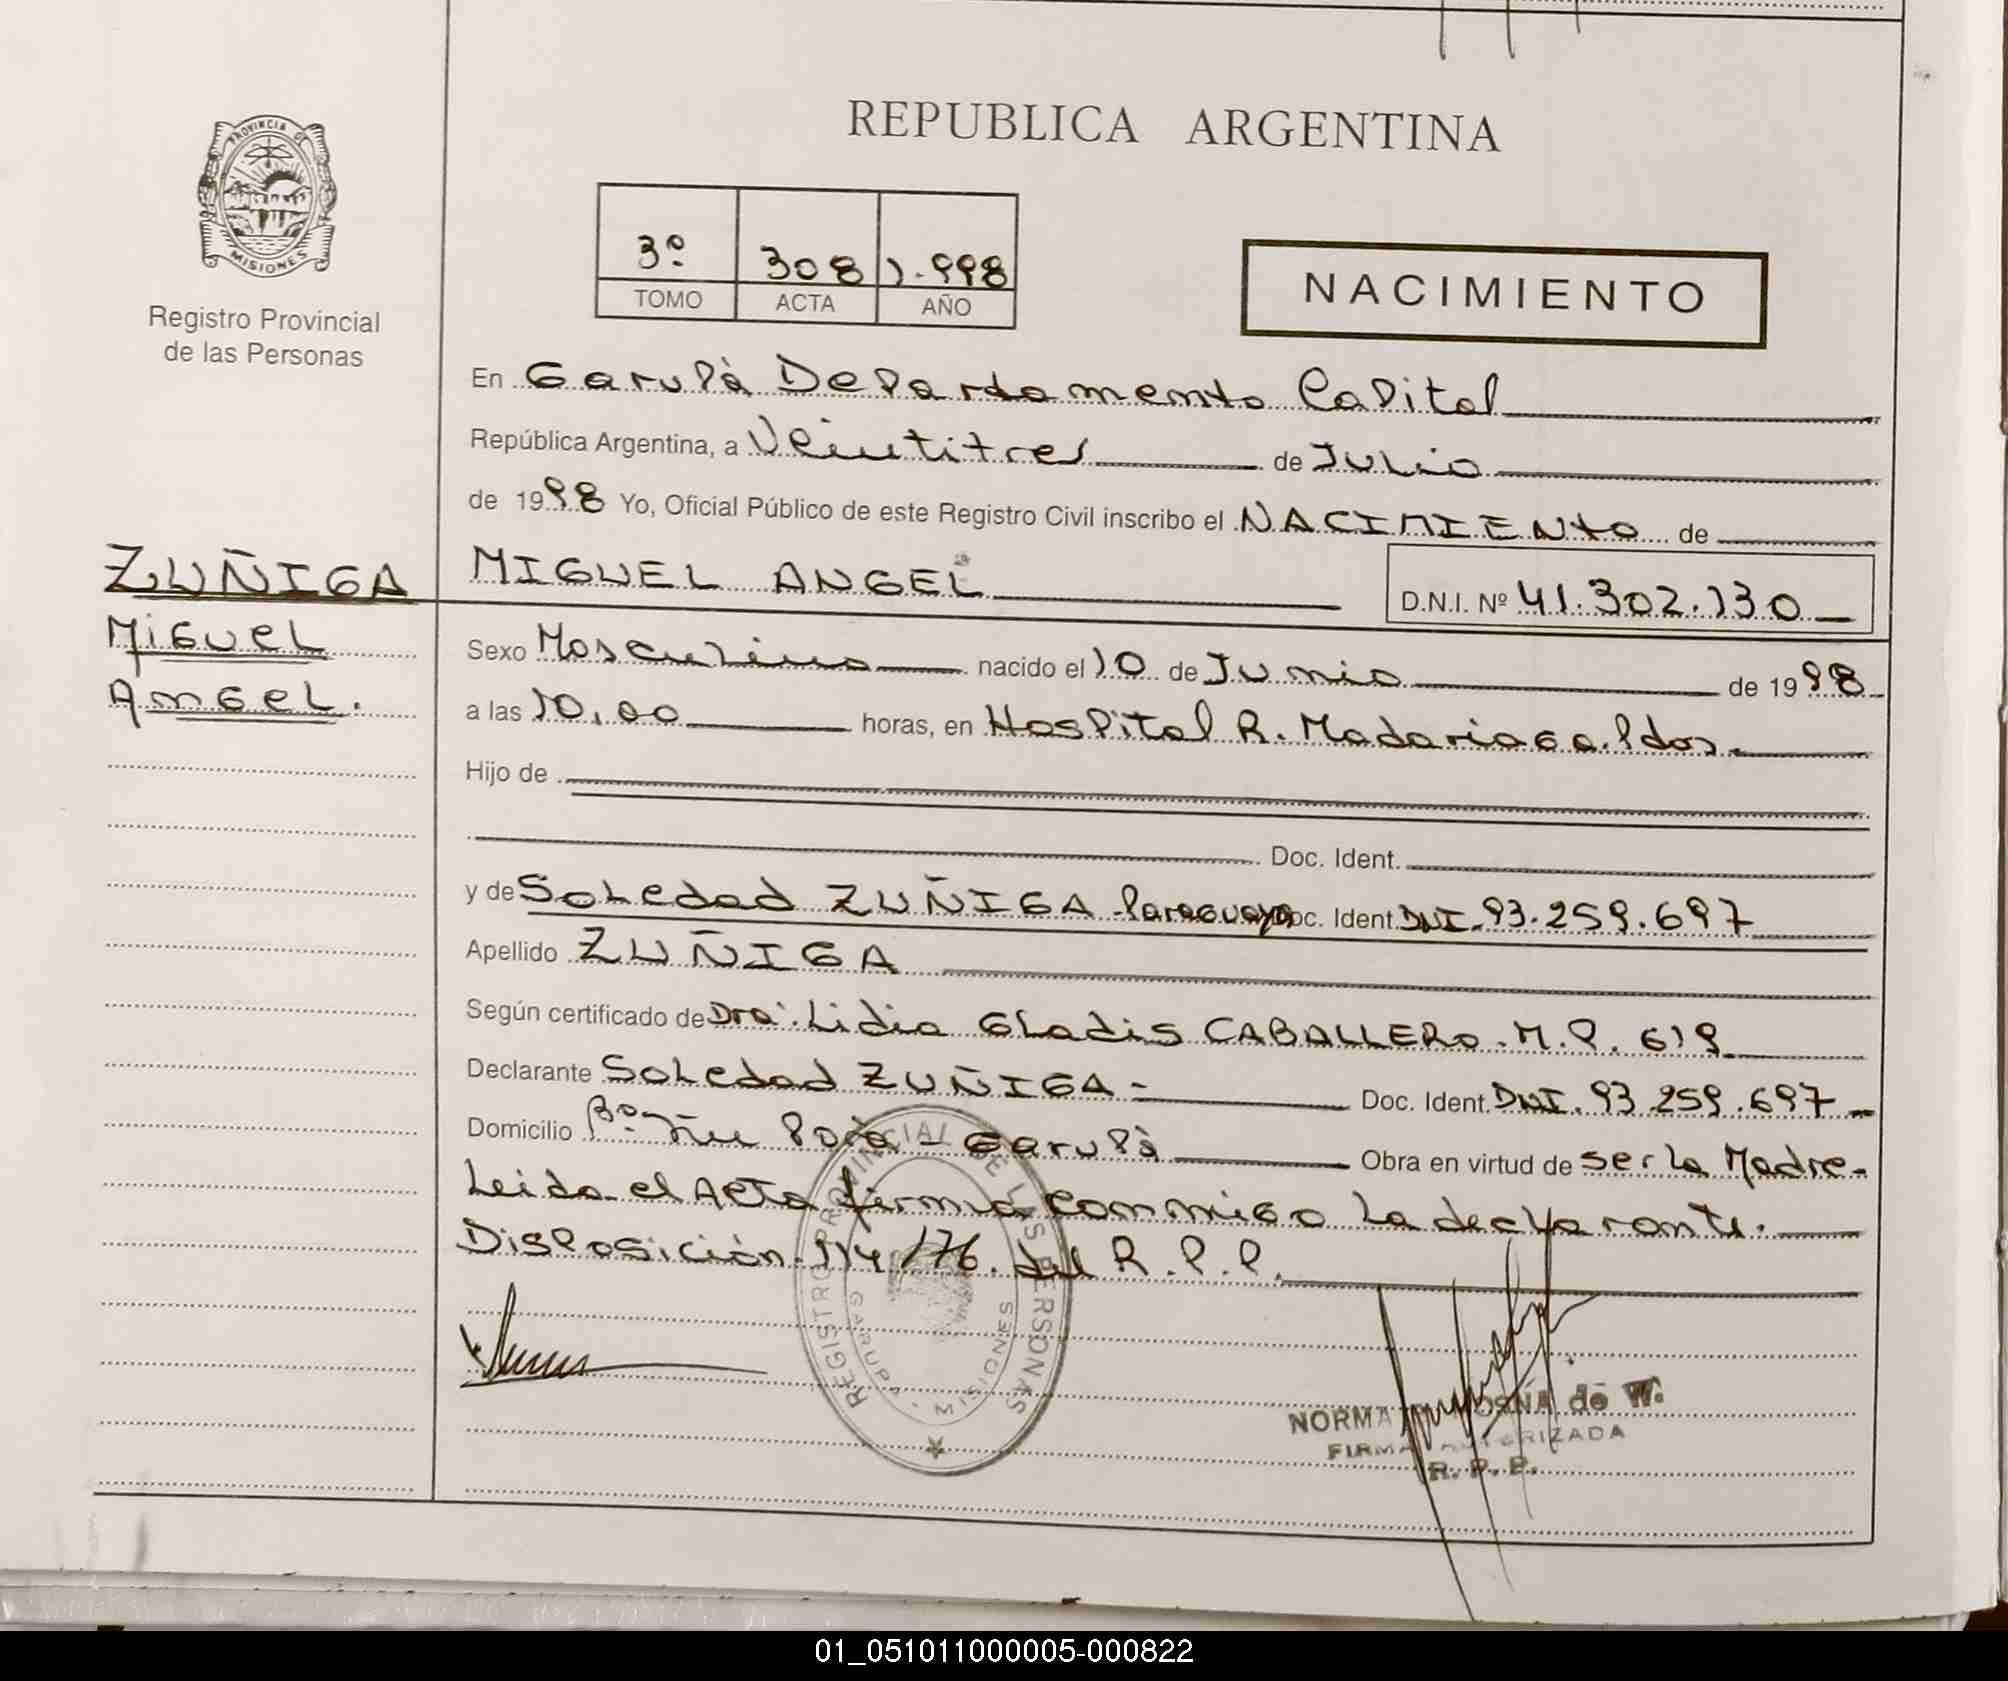 REPUBLICA ARGENTINA
PROVINCIA DE
MISIONES
Registro Provincial
de las Personas
3º 308 1.998
TOMO ACTA AÑO
NACIMIENTO
En Garupà Departamento Capital
República Argentina, a Veintitres de Julio
de 1998 Yo, Oficial Público de este Registro Civil inscribo el NACIMIENto de
ZUÑIGA
Miguel
Angel.
MIGUEL ANGEL D.N.I. Nº 41.302.130
Sexo Masculino nacido el 10 de Junio de 1998
a las 10,00 horas, en Hospital R. Madariaga. Pdas.
Hijo de
Doc. Ident.
y de Soledad ZUÑIGA Paraguaya Doc. Ident. DNI. 93.259.697
Apellido ZUÑIGA
Según certificado de Dra. Lidia Gladis CABALLERO. M.P. 619
Declarante Soledad ZUÑIGA - Doc. Ident. DNI. 93.259.697
Domicilio Bº Ñu Porà - Garupà Obra en virtud de ser la Madre-
Leida el Acta firma conmigo la declarante.
Disposición 114/76. del R.P.P.
REGISTRO PROVINCIAL DE LAS PERSONAS
GARUPA - MISIONES
NORMA de W.
FIRMA AUTORIZADA
R. P. P.
01_051011000005-000822